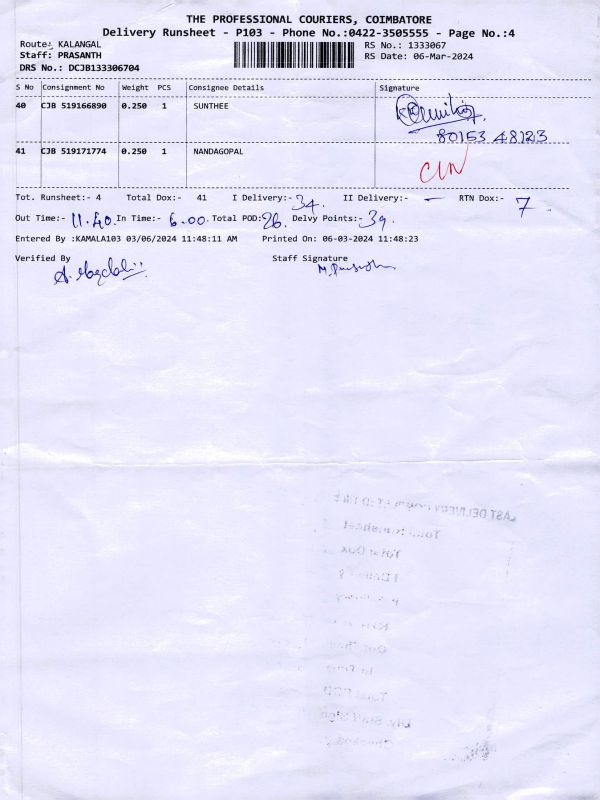 THE PROFESSIONAL COURIERS, COIMBATORE
Delivery Runsheet - P103 - Phone No.:0422-3505555 - Page No.:4
Route: KALANGAL
RS No.: 1333067
Staff: PRASANTH
RS Date: 06-Mar-2024
DRS No.: DCJB133306704
S No Consignment No Weight PCS Consignee Details Signature
40 CJB 519166890 0.250 1 SUNTHEE
80153 48123
41 CJB 519171774 0.250 1 NANDAGOPAL
Tot. Runsheet:- 4 Total Dox:- 41 I Delivery:- 34. II Delivery:- — RTN Dox:- 7
Out Time:- 11.40. In Time:- 6.00. Total POD: 26. Delvy Points:- 39.
Entered By :KAMALA103 03/06/2024 11:48:11 AM Printed On: 06-03-2024 11:48:23
Verified By Staff Signature